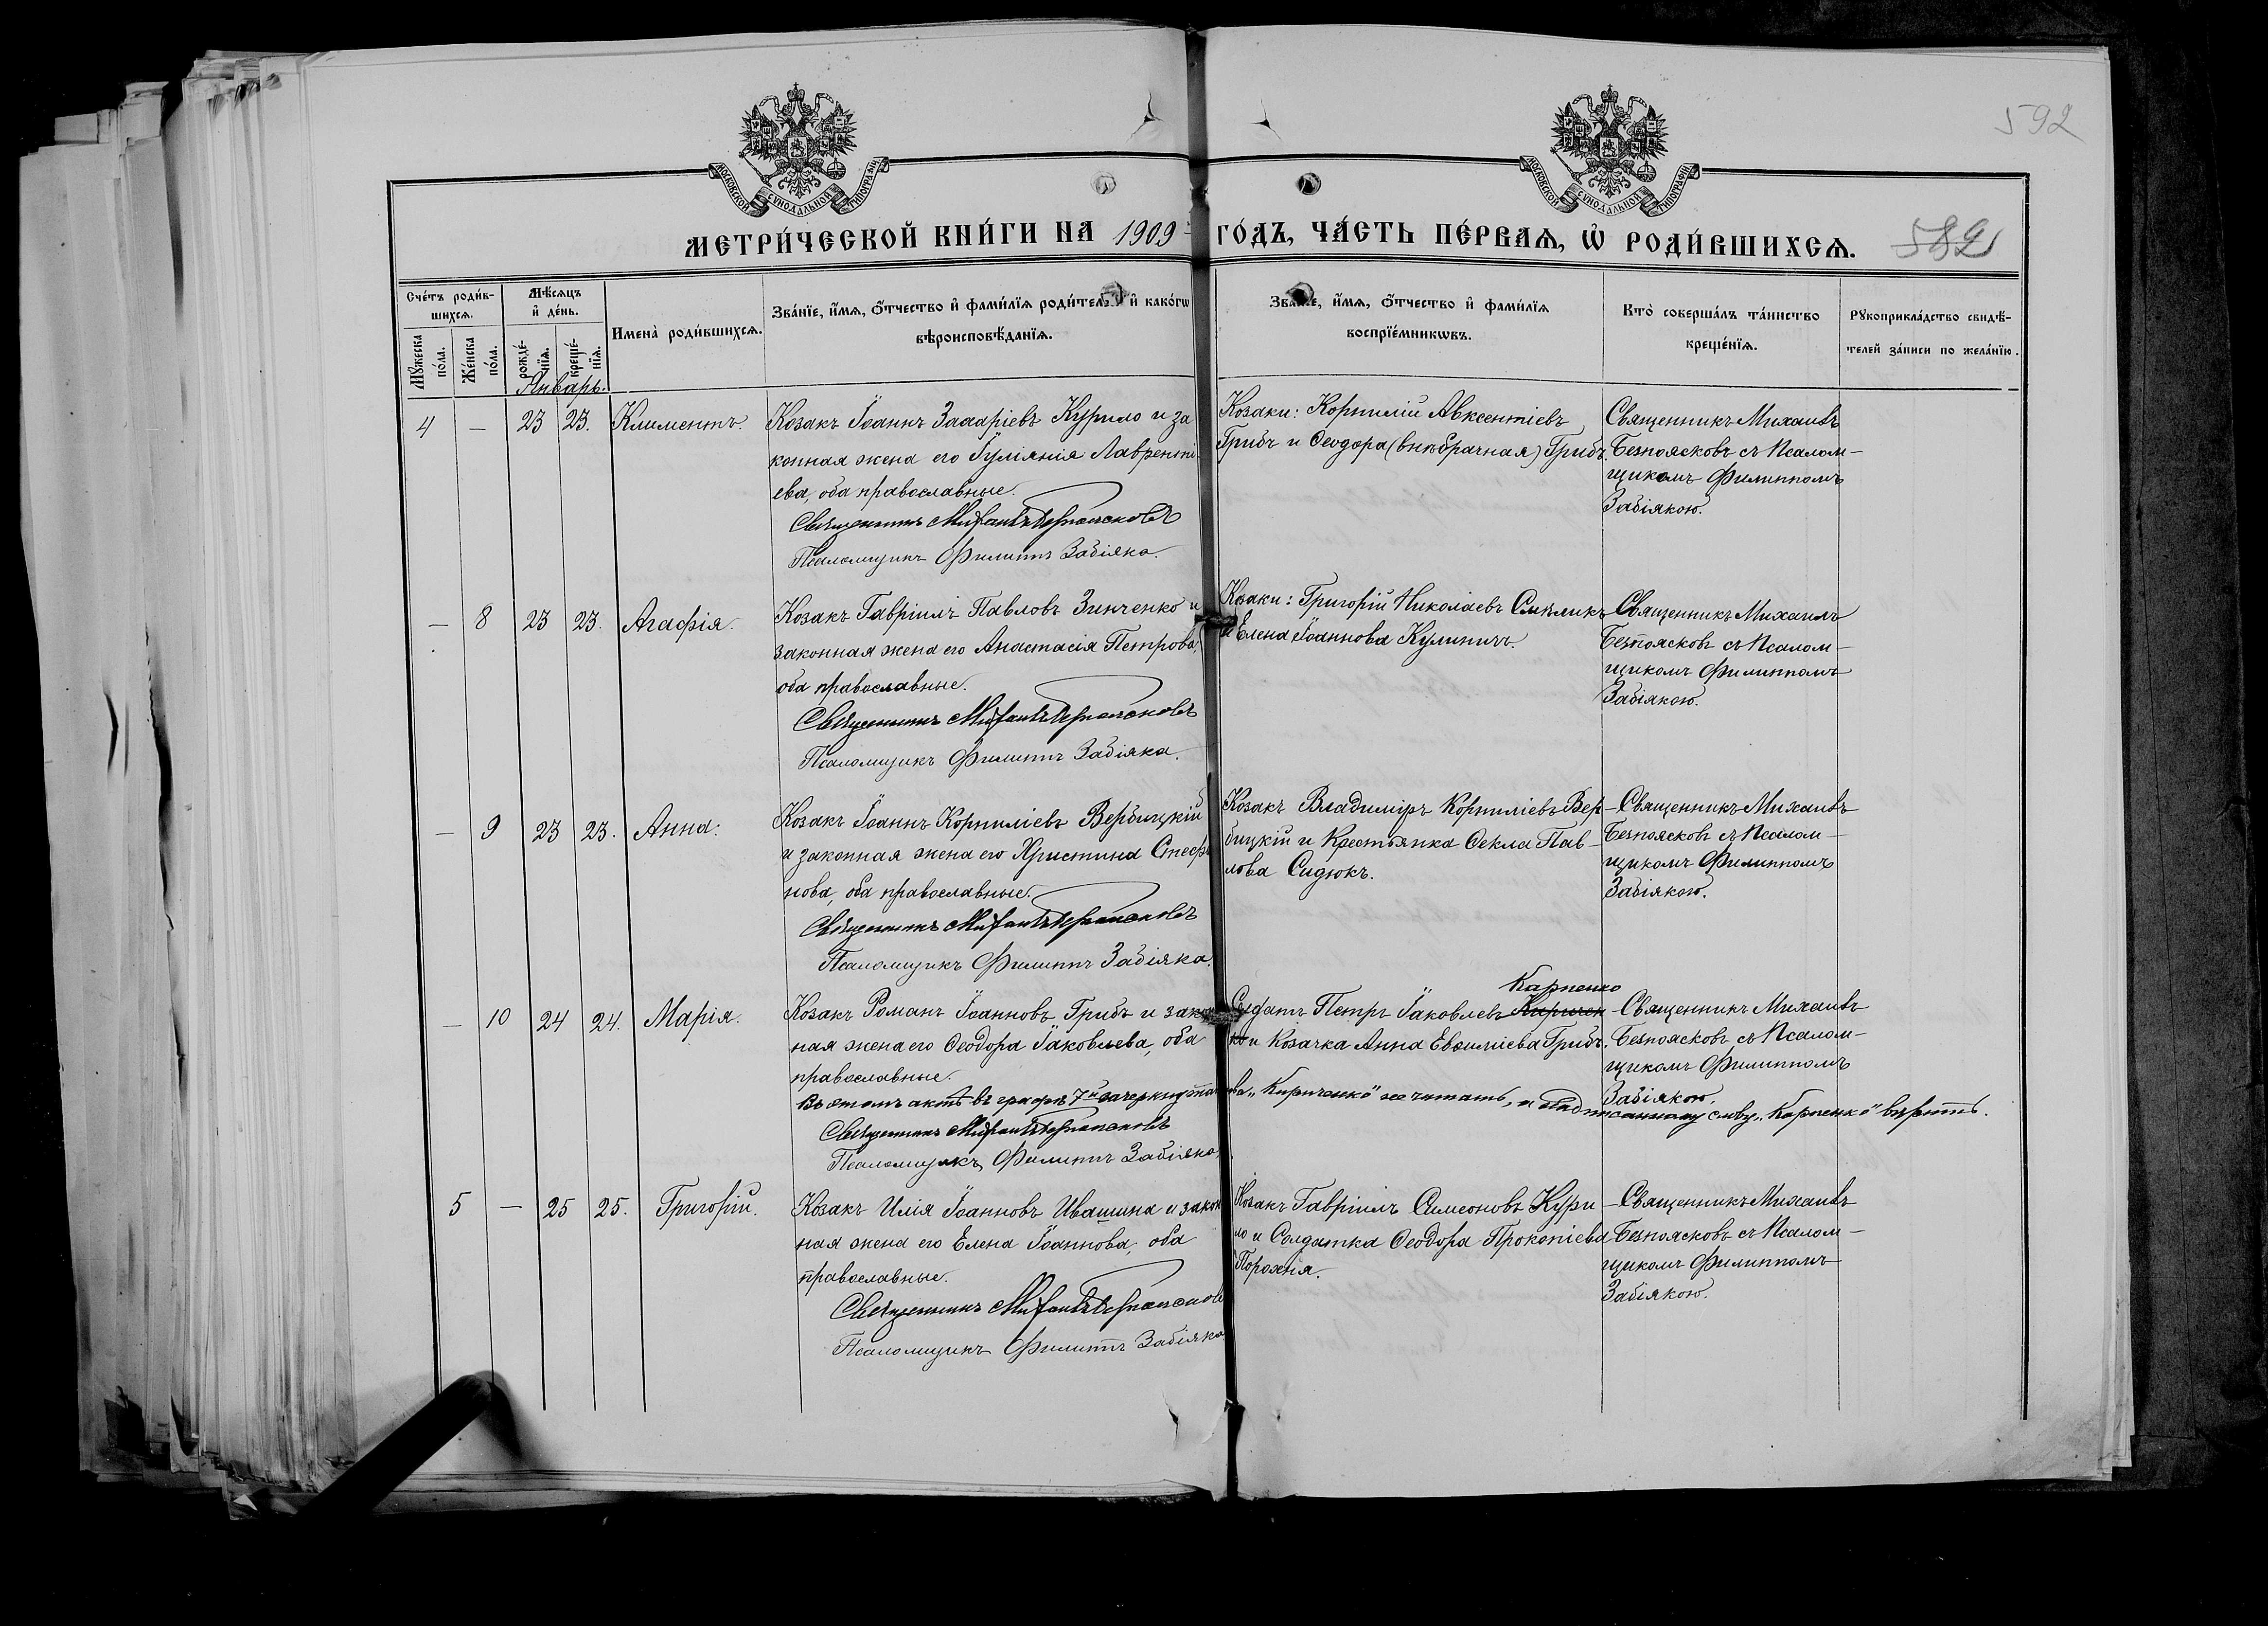 592
МОСКОВСКОЙ СѴНОДАЛЬНОЙ ТИПОГРАФІИ
МОСКОВСКОЙ СѴНОДАЛЬНОЙ ТИПОГРАФІИ
МЕТРИ́ЧЕСКОЙ КНИ́ГИ НА 1909 ГО́ДЪ, ЧА́СТЬ ПЕ́РВАѦ, Ѡ҆ РОДИ́ВШИХСѦ. 582
Сче́тъ роди́в-
шихсѧ.
Мꙋ́жеска по́ла.
Же́нска по́ла.
Мѣ́сѧцъ и҆ де́нь.
рожде́-нїѧ.
креще́-нїѧ.
Имена̀ роди́вшихсѧ.
Зва́нїе, и҆́мѧ, ѻ҆́тчество и҆ фами́лїѧ роди́тел и҆ како́гѡ
вѣроисповѣ́данїѧ.
Зва́нїе, и҆́мѧ, ѻ҆́тчество и҆ фами́лїѧ
воспрїе́мникѡвъ.
Кто̀ соверша́лъ та́инство
креще́нїѧ.
Рꙋкоприкла́дство свидѣ́-
телей за́писи по жела́нїю.
Январь.
4 — 23 23. Климентъ.
Козакъ Іоаннъ Захаріевъ Курило и за
конная жена его Іуліянія Лаврентi
ева, оба православные.
Священникъ Михаилъ Безпоясковъ
Псаломщикъ Филиппъ Забіяка.
Козаки: Корнилій Авксентіевъ
Грибъ и Ѳеодора (внѣбрачная) Грибъ.
Священникъ Михаилъ
Безпоясковъ съ Псалом-
щикомъ Филиппомъ
Забіякою.
— 8 23 23. Агафія.
Козакъ Гавріилъ Павловъ Зинченко и
законная жена его Анастасія Петрова,
оба православные.
Священникъ Михаилъ Безпоясковъ
Псаломщикъ Филиппъ Забіяка.
Козаки: Григорій Николаевъ Смѣликъ
и Елена Іоаннова Кулиничъ.
Священникъ Михаилъ
Безпоясковъ съ Псалом-
щикомъ Филиппомъ
Забіякою.
— 9 23 23. Анна.
Козакъ Іоаннъ Корниліевъ Вербицкій
и законная жена его Христина Стефа
нова, оба православные.
Священникъ Михаилъ Безпоясковъ
Псаломщикъ Филиппъ Забіяка.
Козакъ Владиміръ Корниліевъ Вер-
бицкій и Крестьянка Ѳекла Пав-
лова Сидюкъ.
Священникъ Михаилъ
Безпоясковъ съ Псалом-
щикомъ Филиппомъ
Забіякою.
— 10 24 24. Марія.
Козакъ Романъ Іоанновъ Грибъ и закон
ная жена его Ѳеодора Іаковлева, оба
православные.
Карпенко
Солдатъ Петръ Іаковлевъ Киричен
ко и Козачка Анна Евѳиміева Грибъ.
Священникъ Михаилъ
Безпоясковъ съ Псалом-
щикомъ Филиппомъ
Забіякою.
Въ этомъ актѣ въ графѣ 7й зачеркнутаго слова „Кириченко" не читать, а надписанному слову „Карпенко" вѣрить.
Священникъ Михаилъ Безпоясковъ
Псаломщикъ Филиппъ Забіяка.
5 — 25 25. Григорій.
Козакъ Илія Іоанновъ Ивашина и закон
ная жена его Елена Іоаннова, оба
православные.
Священникъ Михаилъ Безпоясков
Псаломщикъ Филиппъ Забіяка
Козакъ Гавріилъ Симеоновъ Кури-
ло и Солдатка Ѳеодора Прокопіева
Порохня.
Священникъ Михаилъ
Безпоясковъ съ Псалом-
щикомъ Филиппомъ
Забіякою.